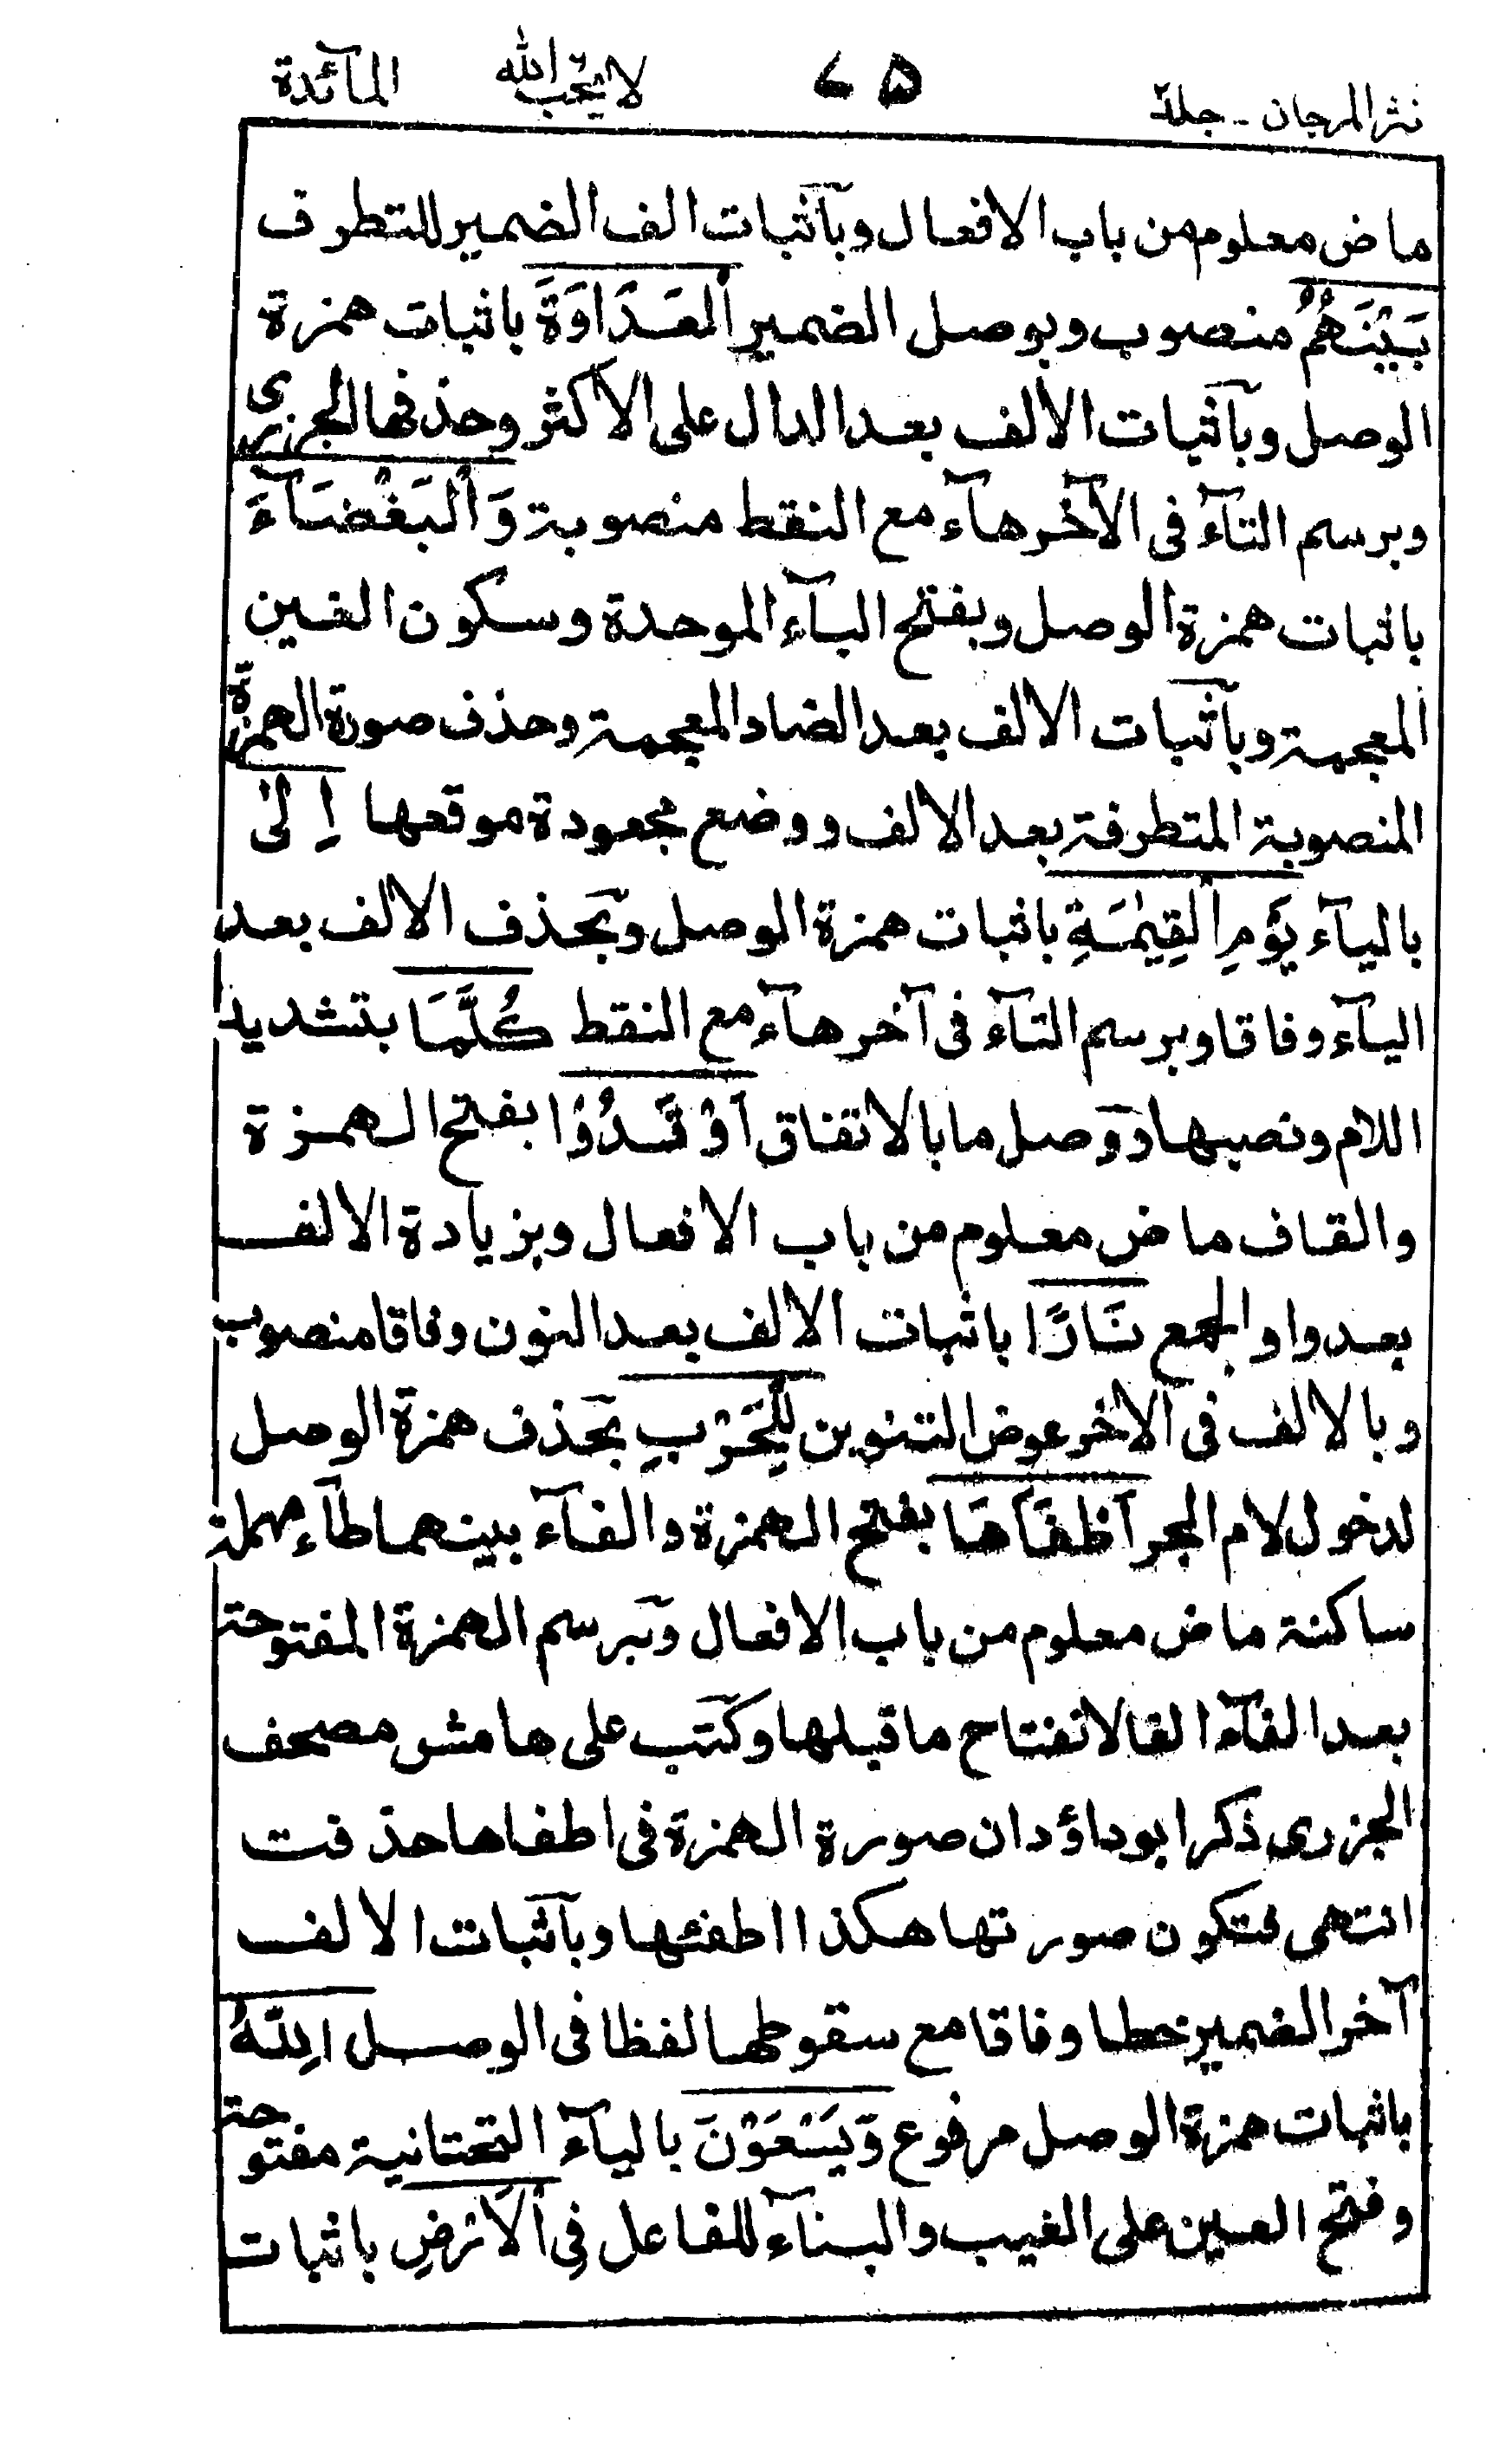 نثر المرجان - جلد۲ ۷۵ لا يحب الله المآئدة
ماض معلوم من باب الافعال وبآثبات الف الضمير للتطرف
بَيْنَهُمُ منصوب وبوصل الضمير الْعَدَاوَةَ باثبات همزة
الوصل وبآثبات الالف بعد الدال على الاكثر وحذفها الجزرى
وبرسم التآء فى الآخر هآء مع النقط منصوبة وَالْبَغْضَآءَ
باثبات همزة الوصل وبفتح البآء الموحدة وسكون الغين
المعجمة وبآثبات الالف بعد الضاد المعجمة وحذف صورة الهمزة
المنصوبة المتطرفة بعد الالف ووضع مجعودة موقعها اِلٰى
باليآء يَوْمِ الْقِيٰمَةِ باثبات همزة الوصل وبحذف الالف بعد
اليآء وفاقا وبرسم التآء فى آخر هآء مع النقط كُلَّمَا بتشديد
اللام ونصبها ووصل ما بالاتفاق اَوْقَدُوْا بفتح الهمزة
والقاف ماض معلوم من باب الافعال وبزيادة الالف
بعد واو الجمع نَارًا باثبات الالف بعد النون وفاقا منصوب
وبالالف فى الآخر عوض التنوين لِّلْحَرْبِ بحذف همزة الوصل
لدخول لام الجر اَطْفَاَهَا بفتح الهمزة والفآء بينهما طآء مهملة
ساكنة ماض معلوم من باب الافعال وبرسم الهمزة المفتوحة
بعد الفآء الفا لانفتاح ما قبلها وكتب على هامش مصحف
الجزرى ذكر ابو داؤد ان صورة الهمزة فى اطفاها حذفت
انتهى فتكون صورتها هكذا اطفئها وبآثبات الالف
آخر الضمير خطا وفاقا مع سقوطها لفظا فى الوصل اللّٰهُ
باثبات همزة الوصل مرفوع وَيَسْعَوْنَ باليآء التحتانية مفتوحة
وفتح العين على الغيب والبنآء للفاعل فِى الْاَرْضِ باثبات